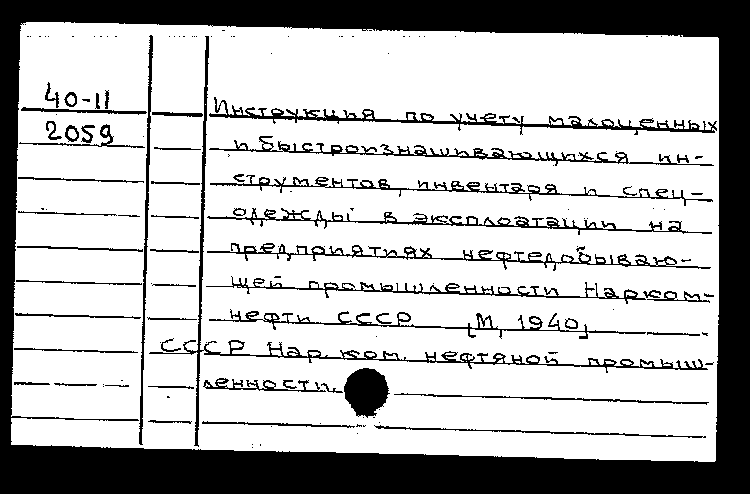 40-11
2059
Инструкция по учету малоценных
и быстроизнашивающихся ин-
струментов, инвентаря и спец-
одежды в эксплоатации на
предприятиях нефтедобываю-
щей промышленности Нарком-
нефти СССР [М, 1940]
СССР Нар. ком. нефтяной промыш-
ленности.